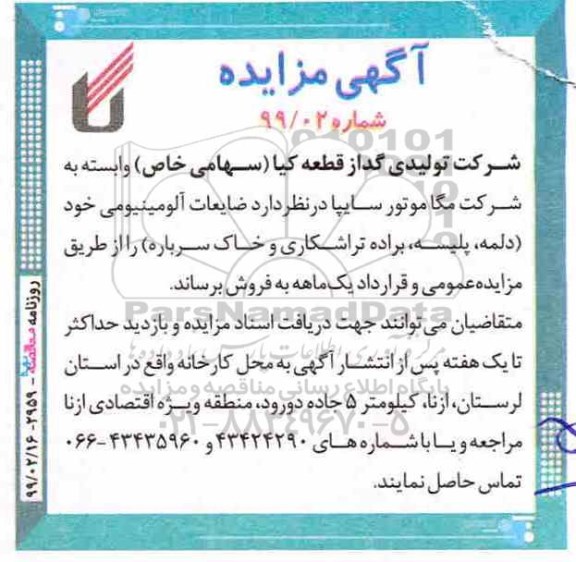 آگهی مزایده
شماره ۹۹/۰۲
شرکت تولیدی گداز قطعه کیا (سهامی خاص) وابسته به
شرکت مگا موتور سایپا در نظر دارد ضایعات آلومینیومی خود
(دلمه، پلیسه، براده تراشکاری و خاک سرباره) را از طریق
مزایده عمومی و قرارداد یک ماهه به فروش برساند.
متقاضیان می توانند جهت دریافت اسناد مزایده و بازدید حداکثر
تا یک هفته پس از انتشار آگهی به محل کارخانه واقع در استان
لرستان، ازنا، کیلومتر ۵ جاده دورود، منطقه ویژه اقتصادی ازنا
مراجعه و یا با شماره های ۴۳۴۲۴۲۹۰ و ۴۳۴۳۵۹۶۰-۰۶۶
تماس حاصل نمایند.
روزنامه مناقصه - ۲۹۵۹ - ۹۹/۰۲/۱۶
ParsNamadData
پایگاه اطلاع رسانی مناقصه و مزایده
۰۲۱-۸۸۳۴۹۶۷۰-۵